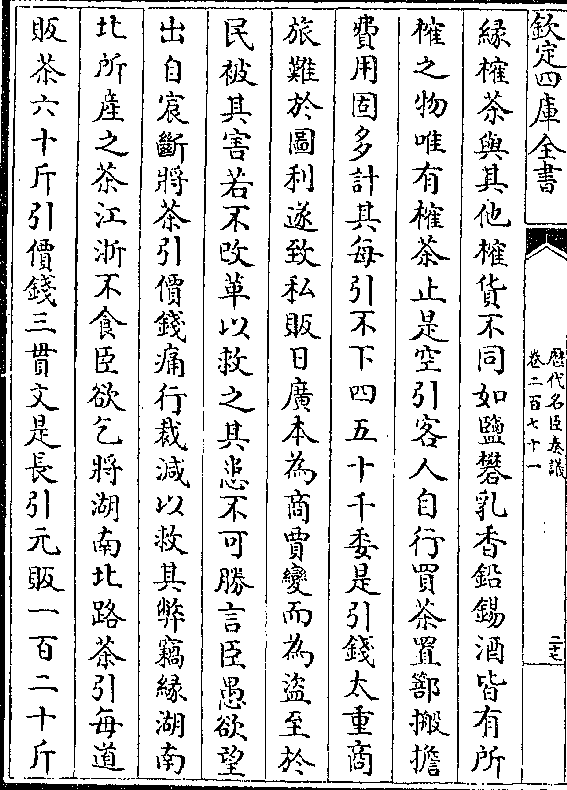 欽定四庫全書
歷代名臣奏議
卷二百七十一
二十七
緣榷茶與其他榷貨不同如鹽礬乳香鉛錫酒皆有所
榷之物唯有榷茶止是空引客人自行買茶置鄯搬擔
費用固多計其每引不下四五十千委是引錢太重商
旅難於圖利遂致私販日廣本為商賈變而為盜至於
民被其害若不改革以救之其患不可勝言臣愚欲望
出自宸斷將茶引價錢痛行裁減以救其弊竊緣湖南
北所產之茶江浙不食臣欲乞將湖南北路茶引每道
販茶六十斤引價錢三貫文是長引元販一百二十斤